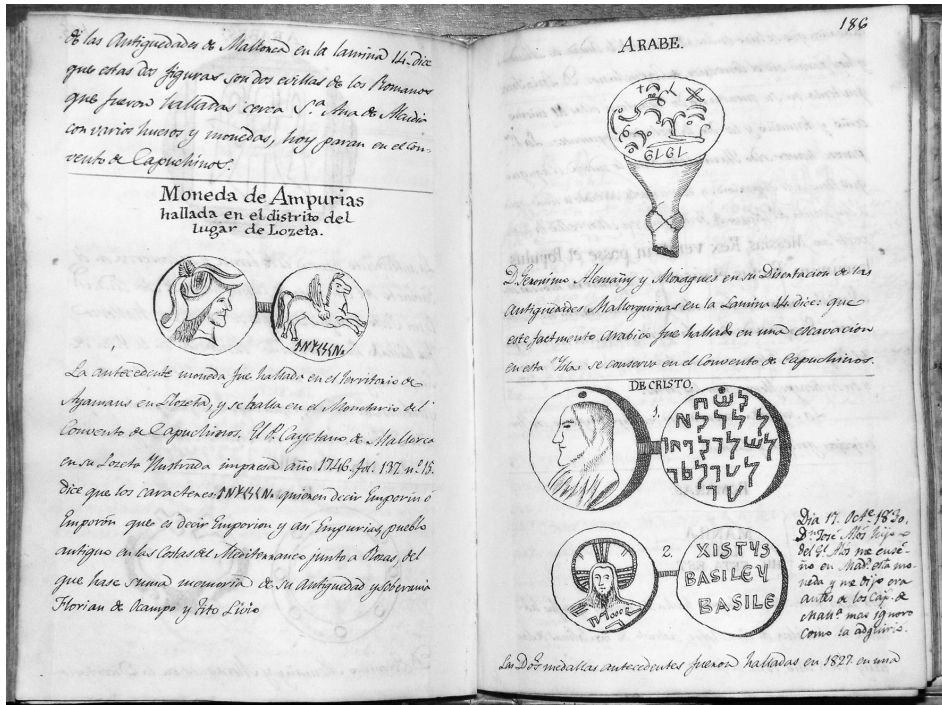 de las Antiguedades de Mallorca en la lamina 14. dice
que estas dos figuras son dos evillas de los Romanos
que fueron halladas cerca S.ª Ana de
con varios huesos y monedas, hoy paran en el Con-
vento de Capuchinos.
Moneda de Ampurias
hallada en el distrito del
lugar de Lozeta.
La antecedente moneda fue hallada en el territorio de
Ayamans en Llozeta, y se halla en el Monetario del
Convento de Capuchinos. El P. Cayetano de Mallorca
en su Lozeta Ilustrada impresa año 1746. fol. 137. nº 15.
dice que los caracteres quieren decir Emporin ó
Emporón que es decir Emporion y asi Empurias, pueblo
antiguo en las Costas del Mediterraneo junto a Rozas, del
que hase suma memoria de su Antiguedad y soberania
Florian de Ocampo y Tito Livio
186
ARABE.
1919
D. Geronimo Alemañy y Moragues en su Disertacion de las
Antiguedades Mallorquinas en la Lamina 14. dice: que
este Arabico fue hallado en una escavacion
en esta Ysla se conserva en el Convento de Capuchinos.
DE CRISTO.
1.
2.
XISTVS
BASILEV
BASILE
Dia 17. Oct.e 1830.
D.n José hijo
del me ense-
ño en Mad.ª esta mo-
neda y me dijo era
antes de los Cap. de
Mall.ca mas ignoro
como la adquiris.
Las Dos medallas antecedentes fueron halladas en 1827 en una